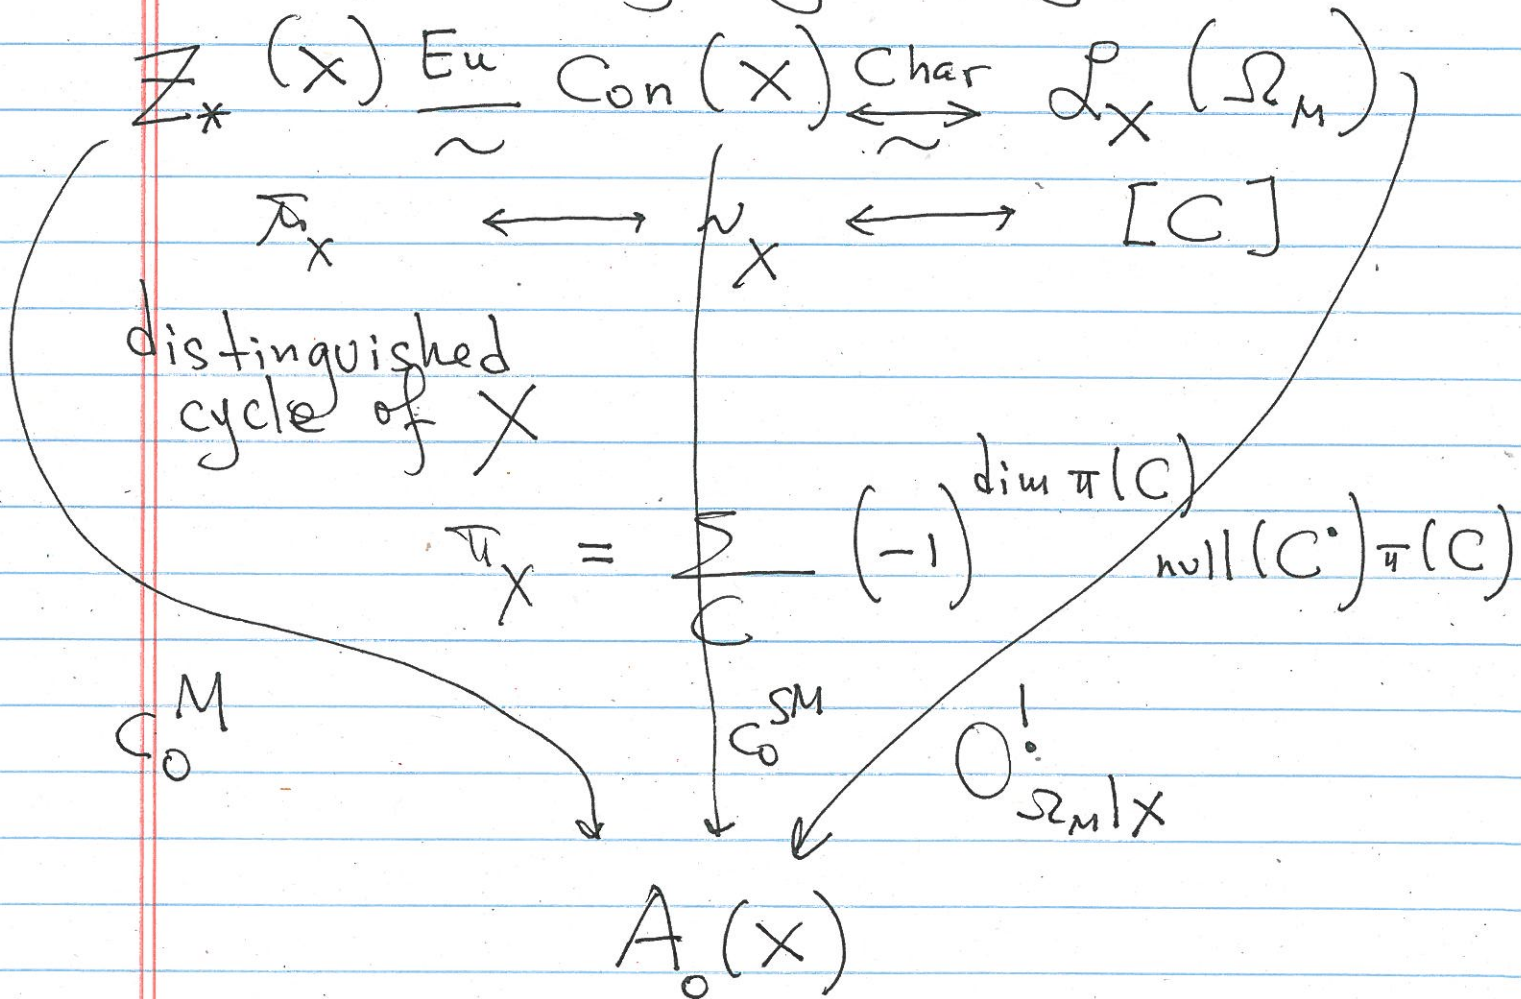 Z_* (X) Eu ~ Con (X) Char ⟷ ~ 𝓛_X (Ω_M)
π_X ⟷ ν_X ⟷ [C]
distinguished
cycle of X
π_X = Σ_C (-1)^{dim π(C)} null(C^•) π(C)
c_0^M c_0^{SM} 0^!_{Ω_M|X}
A_0(X)